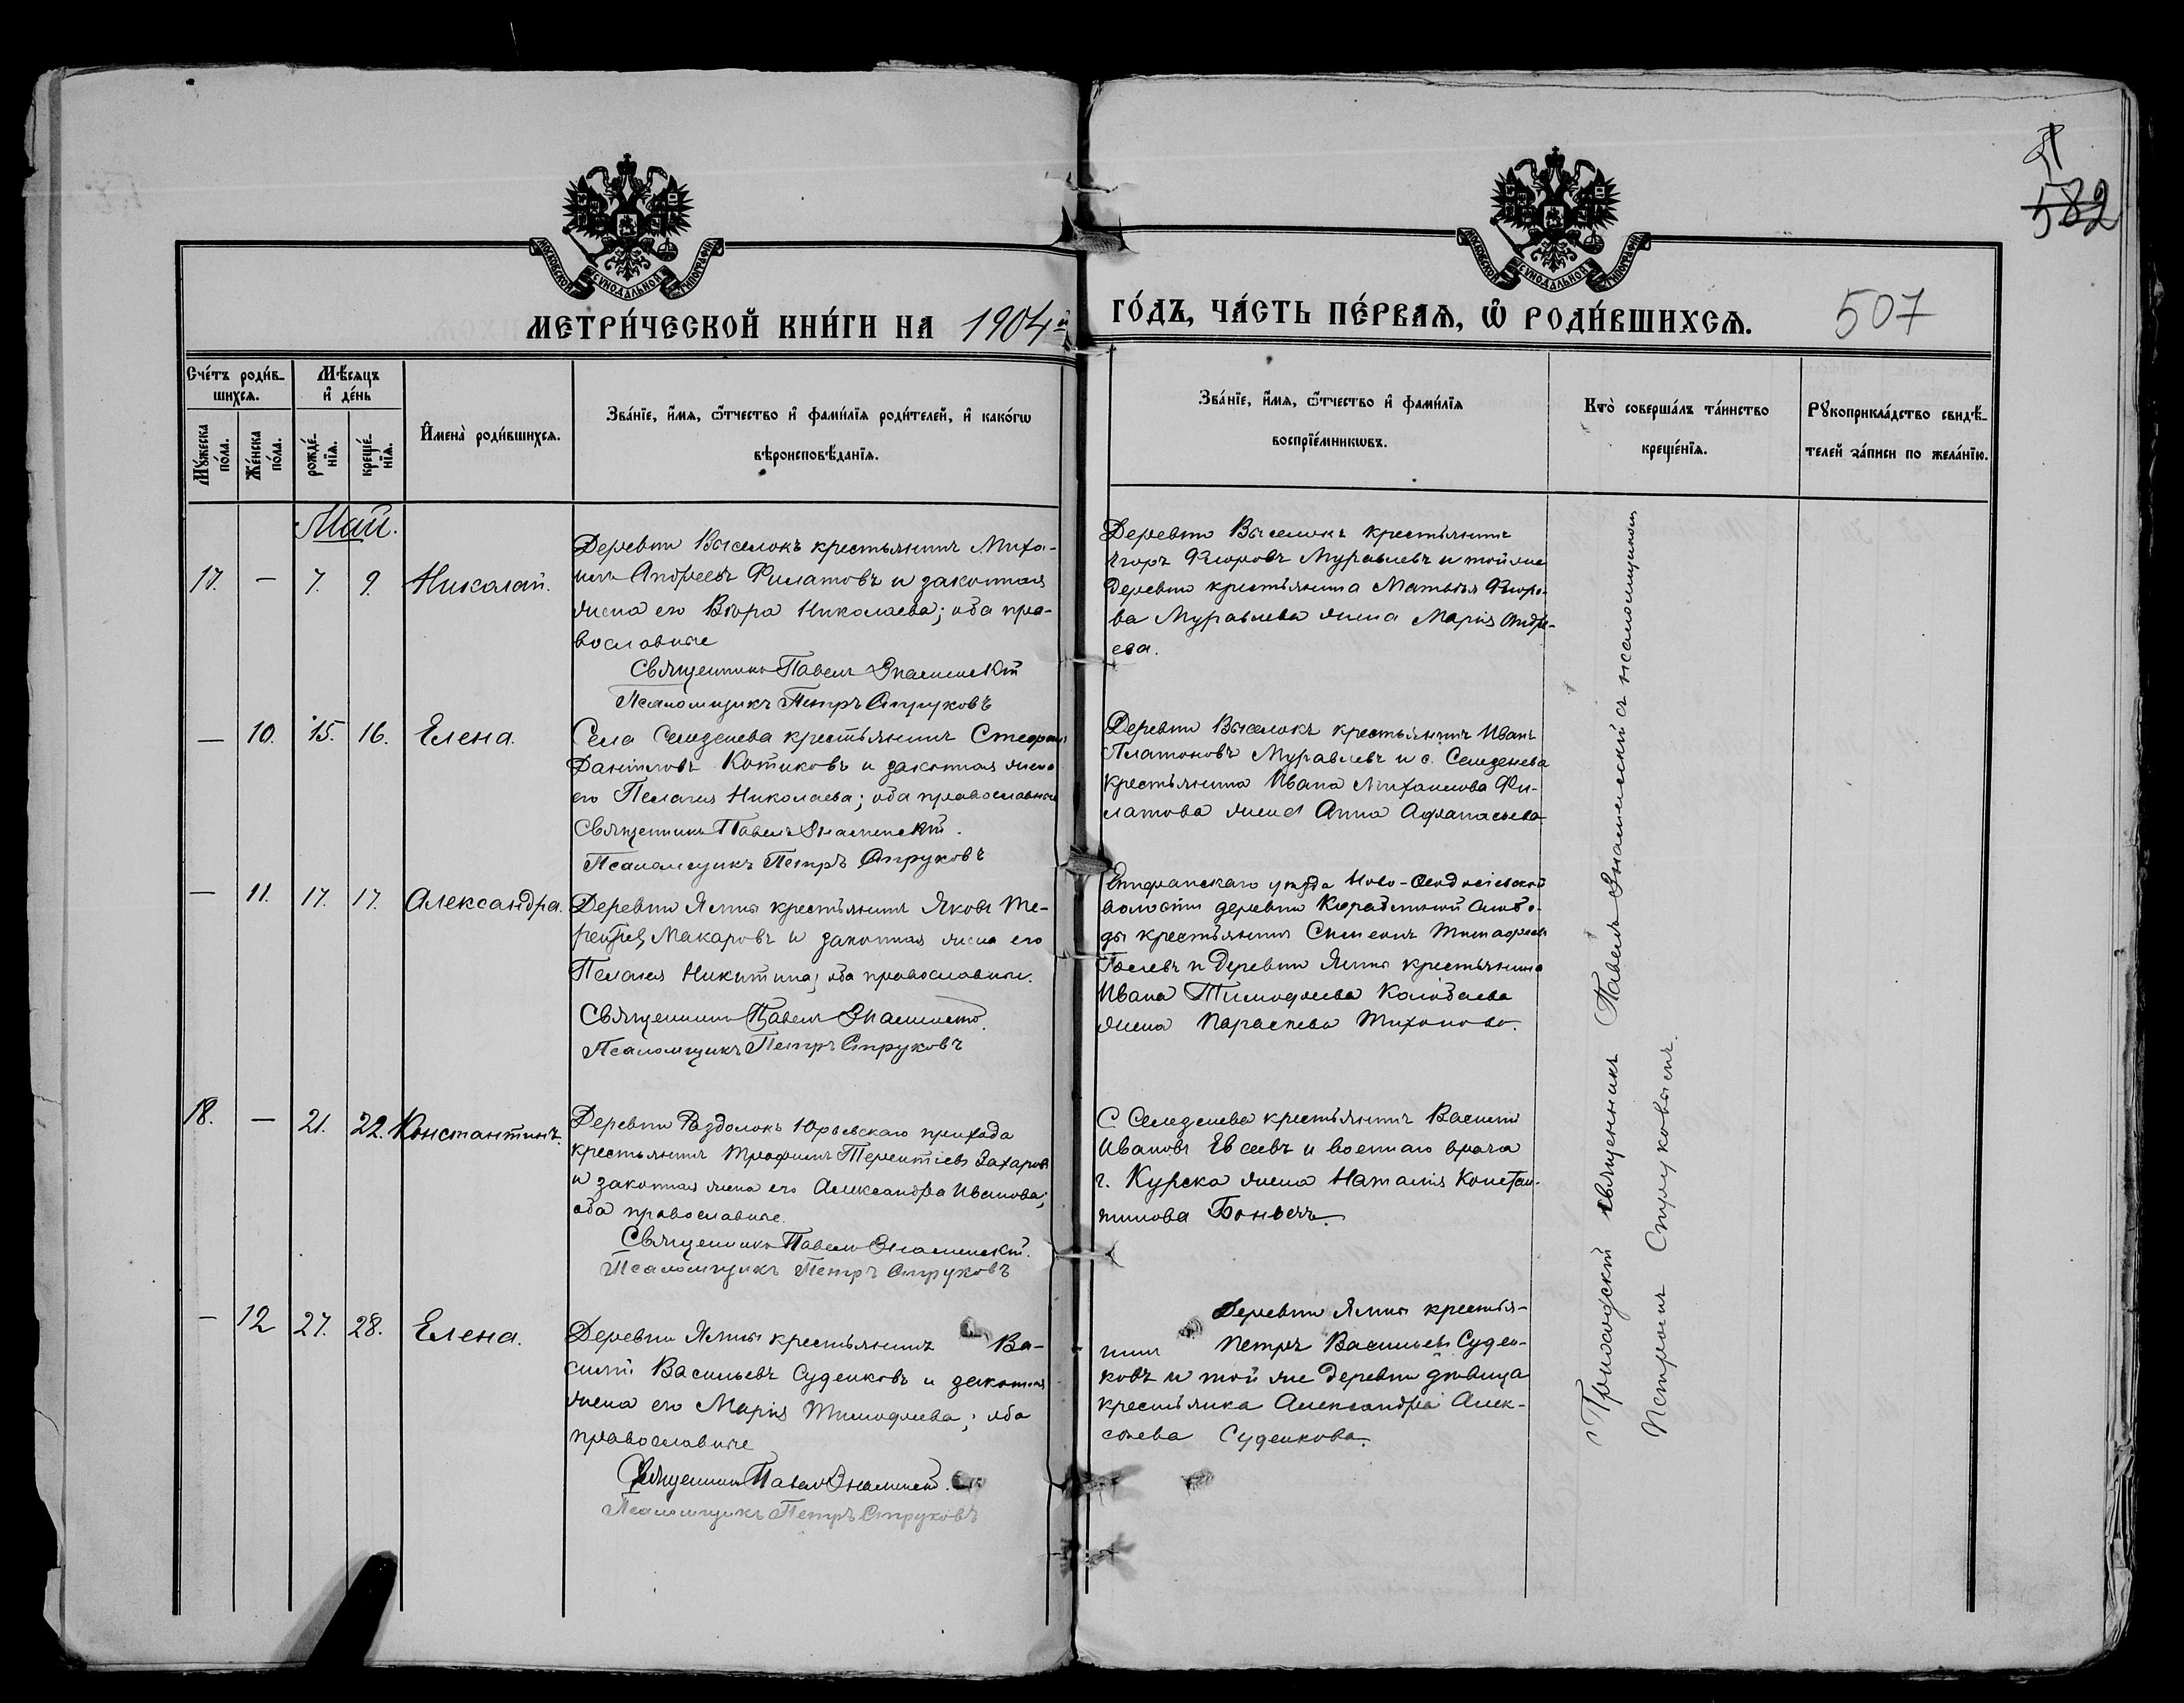 582
МОСКОВСКОЙ СѴНОДАЛЬНОЙ ТИПОГРАФІИ
МОСКОВСКОЙ СѴНОДАЛЬНОЙ ТИПОГРАФІИ
МЕТРИ́ЧЕСКОЙ КНИ́ГИ НА 1904й
ГО́ДЪ, ЧА́СТЬ ПЕ́РВАѦ, Ѡ РОДИ́ВШИХСѦ. 507
Сче́тъ роди́в-
шихсѧ.
Мѣ́сѧцъ
и де́нь
Мꙋ́жеска
по́ла.
Же́нска
по́ла.
рожде́-
нїѧ.
креще́-
нїѧ.
И҆мена̀ роди́вшихсѧ.
Зва́нїе, и҆́мѧ, ѻ҆́тчество и҆ фами́лїѧ роди́телей, и҆ како́гѡ
вѣроисповѣ́данїѧ.
Зва́нїе, и҆́мѧ, ѻ҆́тчество и҆ фами́лїѧ
воспрїе́мникѡвъ.
Кто̀ соверша́лъ та́инство
креще́нїѧ.
Рꙋкоприкла́дство свидѣ́-
телей за́писи по жела́нїю.
Май.
17. — 7. 9. Николай.
Деревни Выселокъ крестьянинъ Миха-
илъ Андреевъ Филатовъ и законная
жена его Вѣра Николаева; оба пра-
вославные
Священникъ Павелъ Знаменскій
Псаломщикъ Петръ Струковъ
Деревни Выселокъ крестьянинъ
Егоръ Ѳедоровъ Муравлевъ и той же
деревни крестьянина Матвѣя
ва Муравлева жена Марія Андре-
ева.
— 10. 15. 16. Елена.
Села Селезнева крестьянинъ Стефанъ
Даніиловъ Котиковъ и законная жена
его Пелагія Николаева; оба православные
Священникъ Павелъ Знаменскій.
Псаломщикъ Петръ Струковъ
Деревни Выселокъ крестьянинъ Иванъ
Платоновъ Муравлевъ и с. Селезнева
крестьянина Ивана Михаилова Фи-
латова жена Анна Афанасьева
— 11. 17. 17. Александра.
Деревни Ямны крестьянинъ Яковъ Те-
рентіев Макаровъ и законная жена его
Пелагія Никитина; оба православные.
Священникъ Павелъ Знаменскій.
Псаломщикъ Петръ Струковъ
Епифанскаго уѣзда Ново-
волости деревни слобо-
ды крестьянинъ Симеонъ
и деревни Ямны крестьянина
Ивана Тимофеева Колобаева
жена Параскева Тихонова.
18. — 21. 22. Константинъ.
Деревни Раздолокъ Юрьевскаго прихода
крестьянинъ Трофимъ Терентіевъ Захаровъ
и законная жена его Александра Иванова;
оба православные.
Священникъ Павелъ Знаменскій.
Псаломщикъ Петръ Струковъ
С. Селезнева крестьянинъ Василій
Ивановъ Евсеевъ и военнаго врача
г. Курска жена Наталія Констан-
тинова
— 12 27. 28. Елена.
Деревни Ямны крестьянинъ Ва-
силій Васильевъ Суденковъ и законная
жена его Марія Тимофеева; оба
православные
Священникъ Павелъ Знаменскій.
Псаломщикъ Петръ Струковъ
Деревни Ямны крестья-
нинъ Петръ Васильевъ Суден-
ковъ и той же деревни дѣвица
крестьянка Александра Алек-
сѣева Суденкова.
Приходскій священникъ Павелъ Знаменскій съ псаломщикомъ
Петромъ Струковымъ.